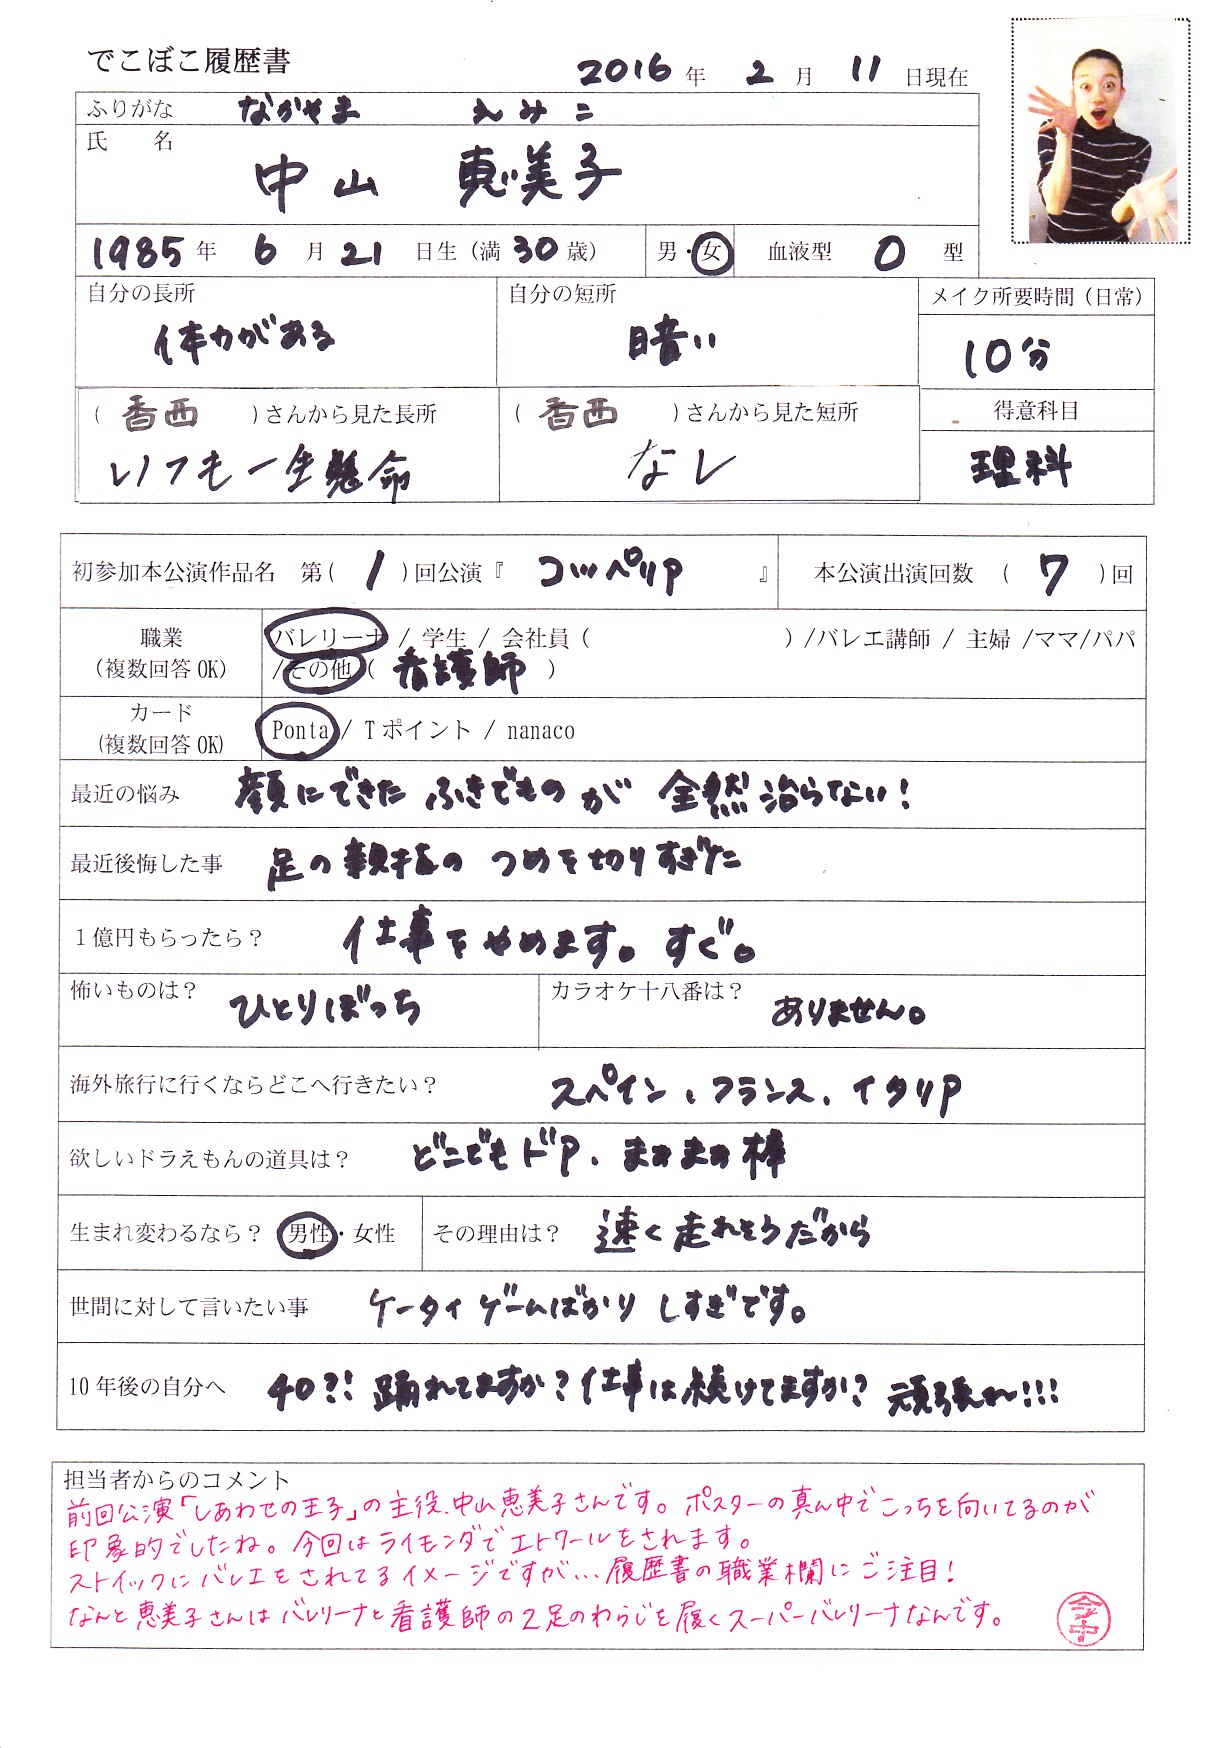 でこぼこ履歴書
2016年 2月 11日現在
ふりがな なかやま えみこ
氏 名
中山 恵美子
1985年 6月21日生(満30歳) 男・女 血液型 O 型
自分の長所 自分の短所 メイク所要時間(日常)
体力がある 暗い 10分
(香西)さんから見た長所 (香西)さんから見た短所 得意科目
いつも一生懸命 なし 理科
初参加本公演作品名 第(1)回公演『コッペリア』 本公演出演回数 (7)回
職業 バレリーナ / 学生 / 会社員( ) /バレエ講師 / 主婦 /ママ/パパ
(複数回答OK) /その他(看護師)
カード
(複数回答OK) Ponta / Tポイント / nanaco
最近の悩み 顔にできたふきでものが全然治らない!
最近後悔した事 足の親指のつめを切りすぎた
1億円もらったら? 仕事をやめます。すぐ。
怖いものは? ひとりぼっち カラオケ十八番は? ありません。
海外旅行に行くならどこへ行きたい? スペイン、フランス、イタリア
欲しいドラえもんの道具は? どこでもドア、まあまあ棒
生まれ変わるなら? 男性・女性 その理由は? 速く走れそうだから
世間に対して言いたい事 ケータイゲームばかりしすぎです。
10年後の自分へ 40?! 踊れてますか?仕事は続けてますか? 頑張れ〜!!!
担当者からのコメント
前回公演「しあわせの王子」の主役、中山恵美子さんです。ポスターの真ん中でこっちを向いてるのが
印象的でしたね。今回はライモンダでエトワールをされます。
ストイックにバレエをされてるイメージですが…履歴書の職業欄にご注目!
なんと恵美子さんはバレリーナと看護師の2足のわらじを履くスーパーバレリーナなんです。